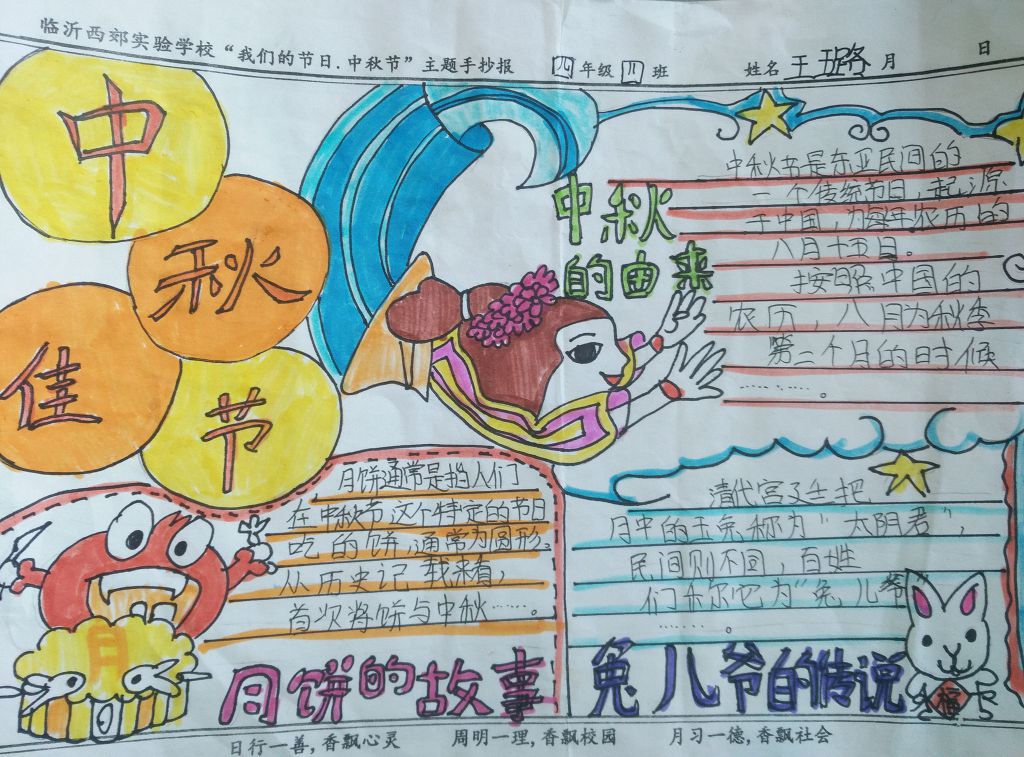 临沂西郊实验学校“我们的节日.中秋节”主题手抄报 四年级四班 姓名王璐 月 日
中
秋
佳
节
中秋
的由来
中秋节是东亚民间的
一个传统节日,起源
于中国,为每年农历的
八月十五日。
按照中国的
农历,八月为秋季
第二个月的时候
……。
月饼通常是指人们
在中秋节这个特定的节日
吃的饼,通常为圆形。
从历史记载来看,
首次将饼与中秋……。
月
月饼的故事
清代宫廷把
月中的玉兔称为“太阴君”,
民间则不同,百姓
们称它为“兔儿爷”
……。
福
兔儿爷的传说
日行一善,香飘心灵 周明一理,香飘校园 月习一德,香飘社会